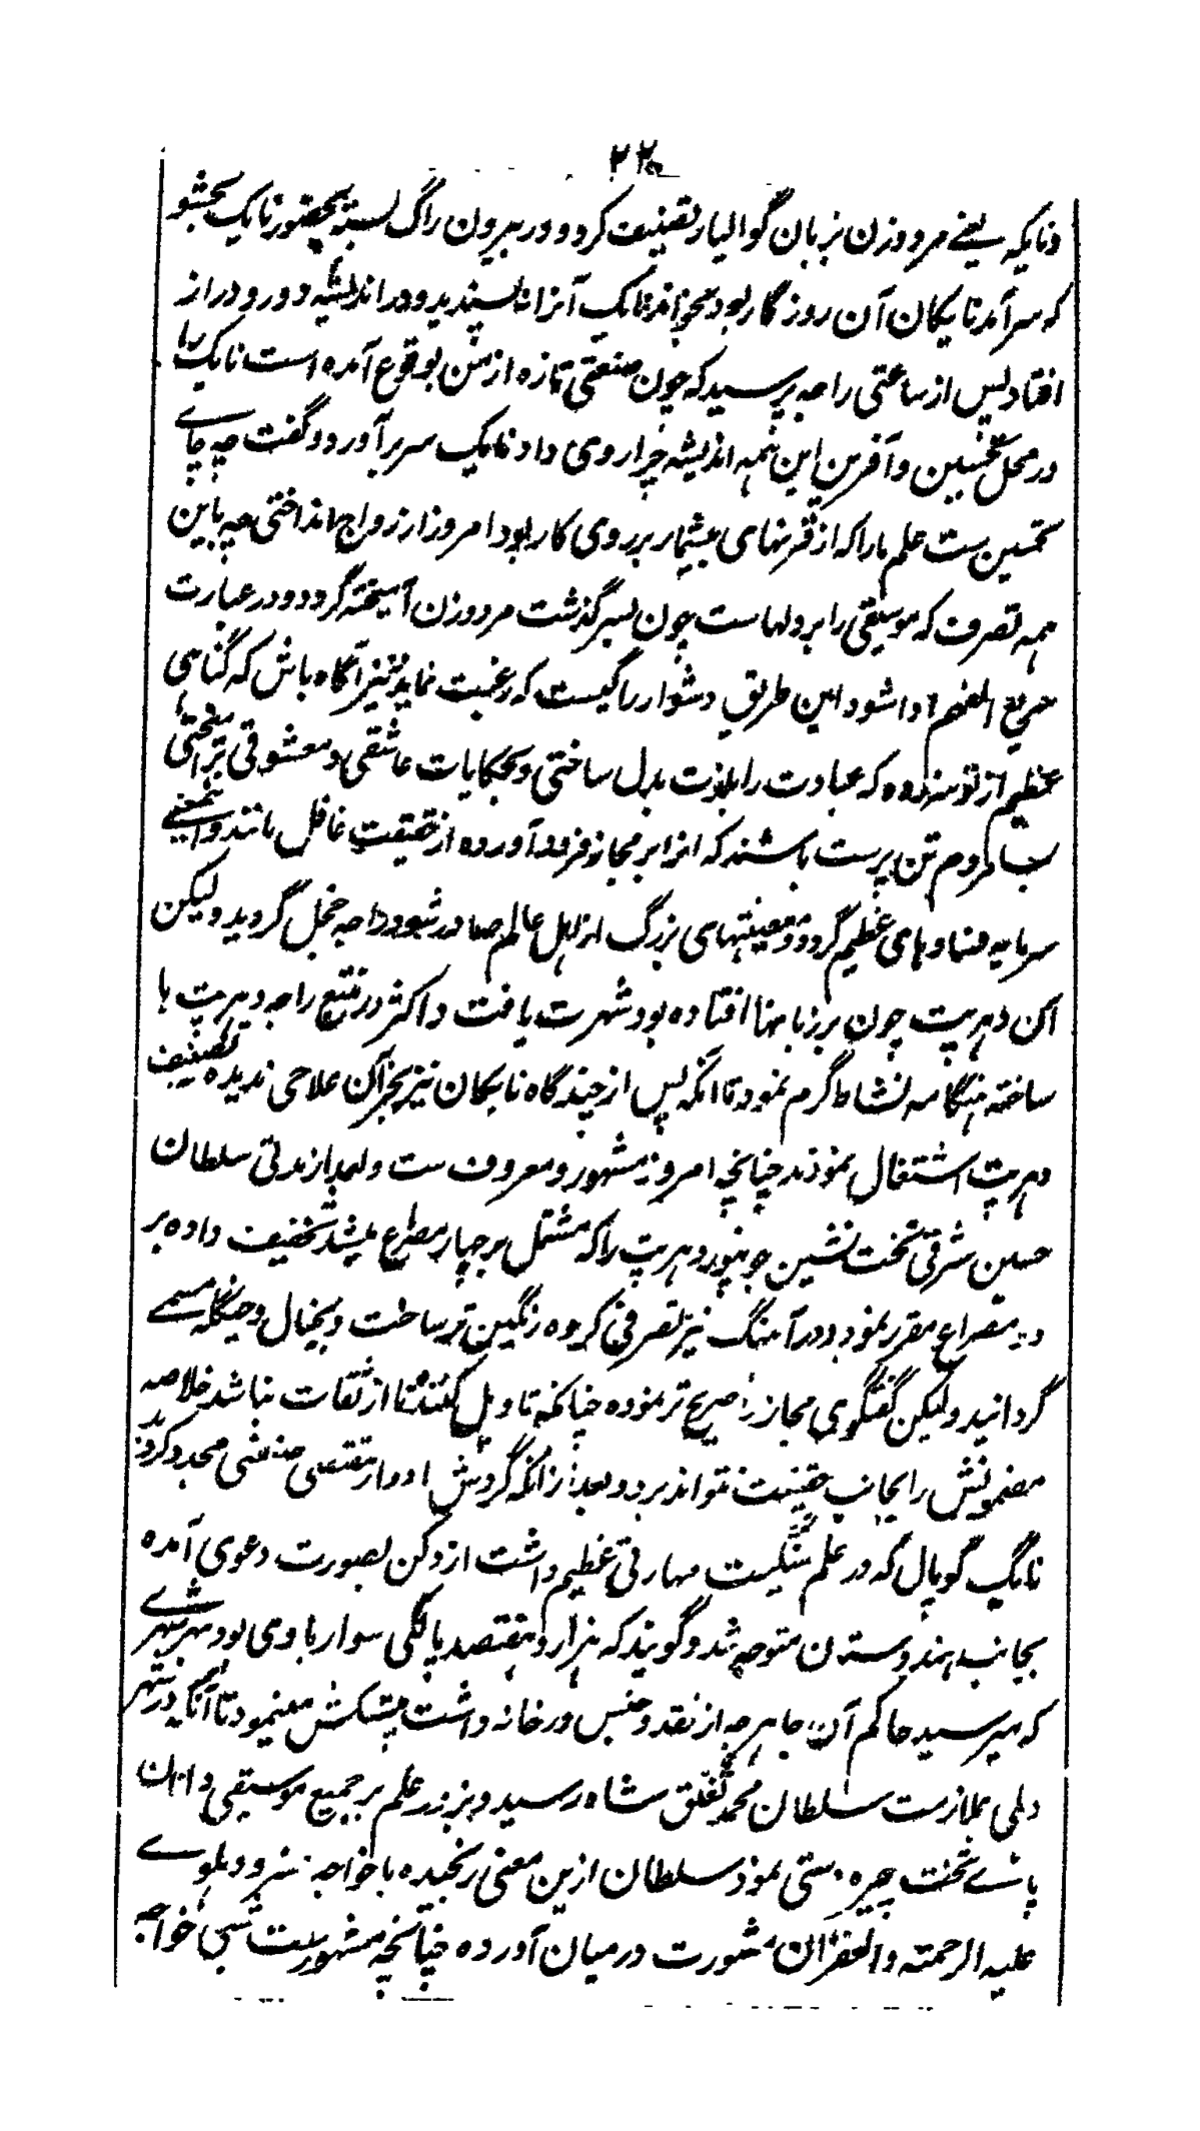 ۲۲۰
ونایکه یعنے مرد وزن بزبان گوالیار تصنیف کرد و در بیرون راگ بسته بحضور نایک بخشو
که سرآمد نایکان آن روزگار بود بخواند نایک آنرا نه پسندید و در اندیشه دور و دراز
افتاد پس از ساعتی راجه پرسید که چون صنعتی تازه از من بوقوع آمده است نایک را
در محل تحسین و آفرین این همه اندیشه چرا روی داد نایک سر برآورد و گفت چه جاے
تحسین ست علم ما را که از قرنهای بیشمار بر روی کار بود امروز از رواج انداختی چه باین
همه تصرف که موسیقی را بر دلهاست چون بسر گذشت مرد وزن آمیخته گردد و در عبارت
سریع الفهم ادا شود این طریق دشوار را کیست که رغبت نماید نیز آگاه باش که گناهی
عظیم از تو سر زده که عبادت را بلذت بدل ساختی و بحکایات عاشقی و معشوقی پرداختی
بسا مردم تن پرست باشند که آنرا بر مجاز فرود آورده از حقیقت غافل مانند و اینمعنے
سرمایه فسادهای عظیم گردد و معصیتهای بزرگ از اهل عالم صادر شود راجه خجل گردید ولیکن
آن دهرپت چون بر زبانها افتاده بود شهرت یافت و اکثر در تتبع راجه دهرپت ها
ساخته هنگامه نشاط گرم نمود تا آنکه پس از چند گاه نایکان نیز بجز آن علاجی ندیده بتصنیف
دهرپت اشتغال نمودند چنانچه امروز مشهور و معروف ست و بعد از مدتی سلطان
حسین شرقی تخت نشین جونپور دهرپت را که مشتمل بر چهار مصرع میشد تخفیف داده بر
دو مصراع مقرر نمود و در آهنگ نیز تصرفی کرده رنگین تر ساخت و بخیال و چٹکله مسمے
گردانید ولیکن گفتگوی مجاز را صریح تر نموده چنانکه تاویل کننده تا از ثقات نباشد خلاصه
مضمونش را بجانب حقیقت نتواند برد و بعد از آنکه گردش ادوار مقتضی
نایک گوپال که در علم سنگیت مهارتی عظیم داشت از دکن بصورت دعوی آمده
بجانب هندوستان متوجه شد و گویند که هزار و هفتصد پالکی سوار با وی بود بهر شهرے
که میرسید حاکم آن جا هرچه از نقد و جنس در خانه داشت پیشکش مینمود تا آنکه در شهر
دهلی بملازمت سلطان محمد تغلق شاه رسید و بزور علم بر جمیع موسیقی دانان
پاے تخت چیره دستی نمود سلطان ازین معنی رنجیده با خواجه خسرو دهلوے
علیه الرحمته والغفران مشورت درمیان آورده چنانچه مشهورست شبی خواجه